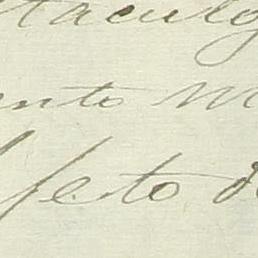 taculo
ento M
feito d